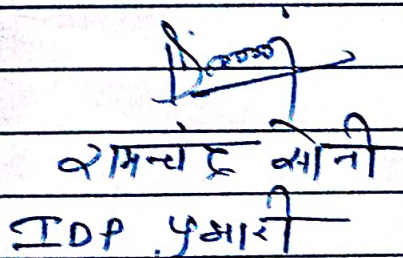 रामचंद्र सोनी
IDP प्रभारी